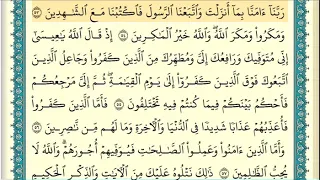 رَبَّنَآ ءَامَنَّا بِمَآ أَنزَلْتَ وَٱتَّبَعْنَا ٱلرَّسُولَ فَٱكْتُبْنَا مَعَ ٱلشَّٰهِدِينَ ٥٣
وَمَكَرُوا۟ وَمَكَرَ ٱللَّهُ وَٱللَّهُ خَيْرُ ٱلْمَٰكِرِينَ ٥٤ إِذْ قَالَ ٱللَّهُ يَٰعِيسَىٰٓ
إِنِّى مُتَوَفِّيكَ وَرَافِعُكَ إِلَىَّ وَمُطَهِّرُكَ مِنَ ٱلَّذِينَ كَفَرُوا۟ وَجَاعِلُ ٱلَّذِينَ
ٱتَّبَعُوكَ فَوْقَ ٱلَّذِينَ كَفَرُوٓا۟ إِلَىٰ يَوْمِ ٱلْقِيَٰمَةِ ثُمَّ إِلَىَّ مَرْجِعُكُمْ
فَأَحْكُمُ بَيْنَكُمْ فِيمَا كُنتُمْ فِيهِ تَخْتَلِفُونَ ٥٥ فَأَمَّا ٱلَّذِينَ كَفَرُوا۟
فَأُعَذِّبُهُمْ عَذَابًا شَدِيدًا فِى ٱلدُّنْيَا وَٱلْءَاخِرَةِ وَمَا لَهُم مِّن نَّٰصِرِينَ ٥٦
وَأَمَّا ٱلَّذِينَ ءَامَنُوا۟ وَعَمِلُوا۟ ٱلصَّٰلِحَٰتِ فَيُوَفِّيهِمْ أُجُورَهُمْ وَٱللَّهُ لَا
يُحِبُّ ٱلظَّٰلِمِينَ ٥٧ ذَٰلِكَ نَتْلُوهُ عَلَيْكَ مِنَ ٱلْءَايَٰتِ وَٱلذِّكْرِ ٱلْحَكِيمِ